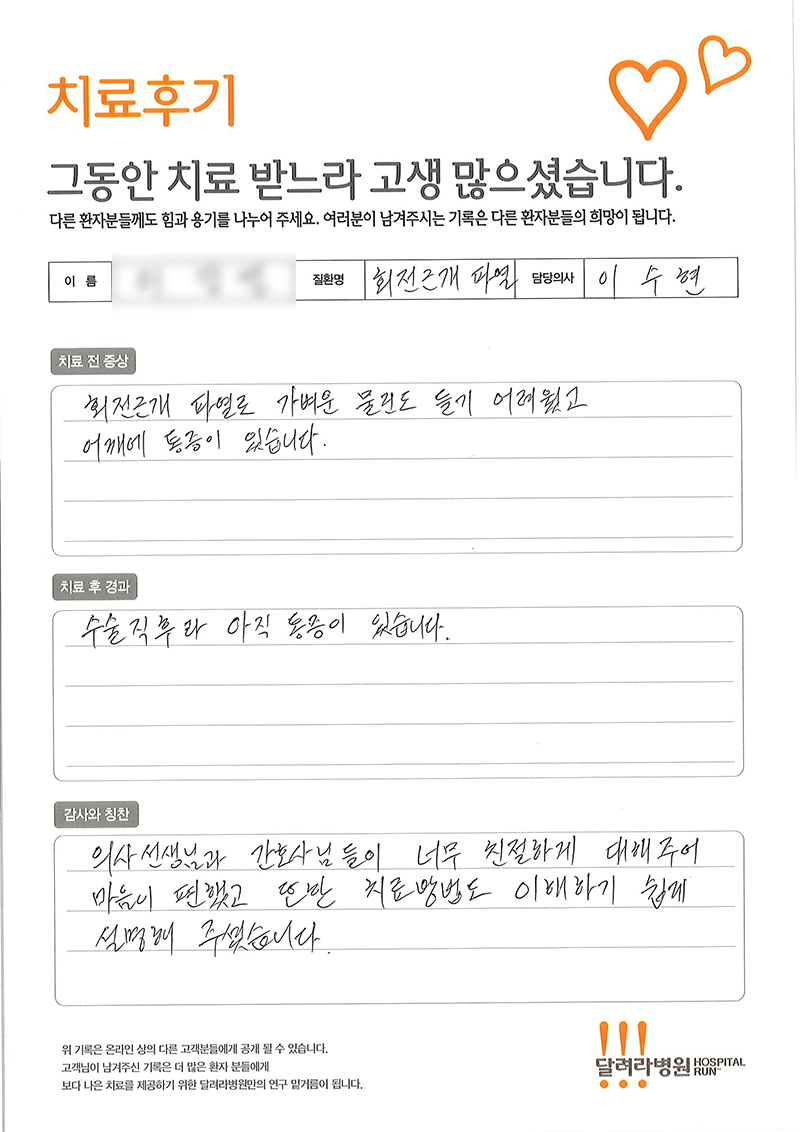 치료후기
그동안 치료 받느라 고생 많으셨습니다.
다른 환자분들께도 힘과 용기를 나누어 주세요. 여러분이 남겨주시는 기록은 다른 환자분들의 희망이 됩니다.
이 름 질환명 회전근개 파열 담당의사 이 수 현
치료 전 증상
회전근개 파열로 가벼운 물건도 들기 어려웠고
어깨에 통증이 있습니다.
치료 후 경과
수술직후라 아직 통증이 있습니다.
감사와 칭찬
의사선생님과 간호사님들이 너무 친절하게 대해주어
마음이 편했고 또한 치료방법도 이해하기 쉽게
설명해 주셨습니다.
위 기록은 온라인 상의 다른 고객분들에게 공개 될 수 있습니다.
고객님이 남겨주신 기록은 더 많은 환자 분들에게
보다 나은 치료를 제공하기 위한 달려라병원만의 연구 밑거름이 됩니다.
!!!
달려라병원 HOSPITAL
RUN™